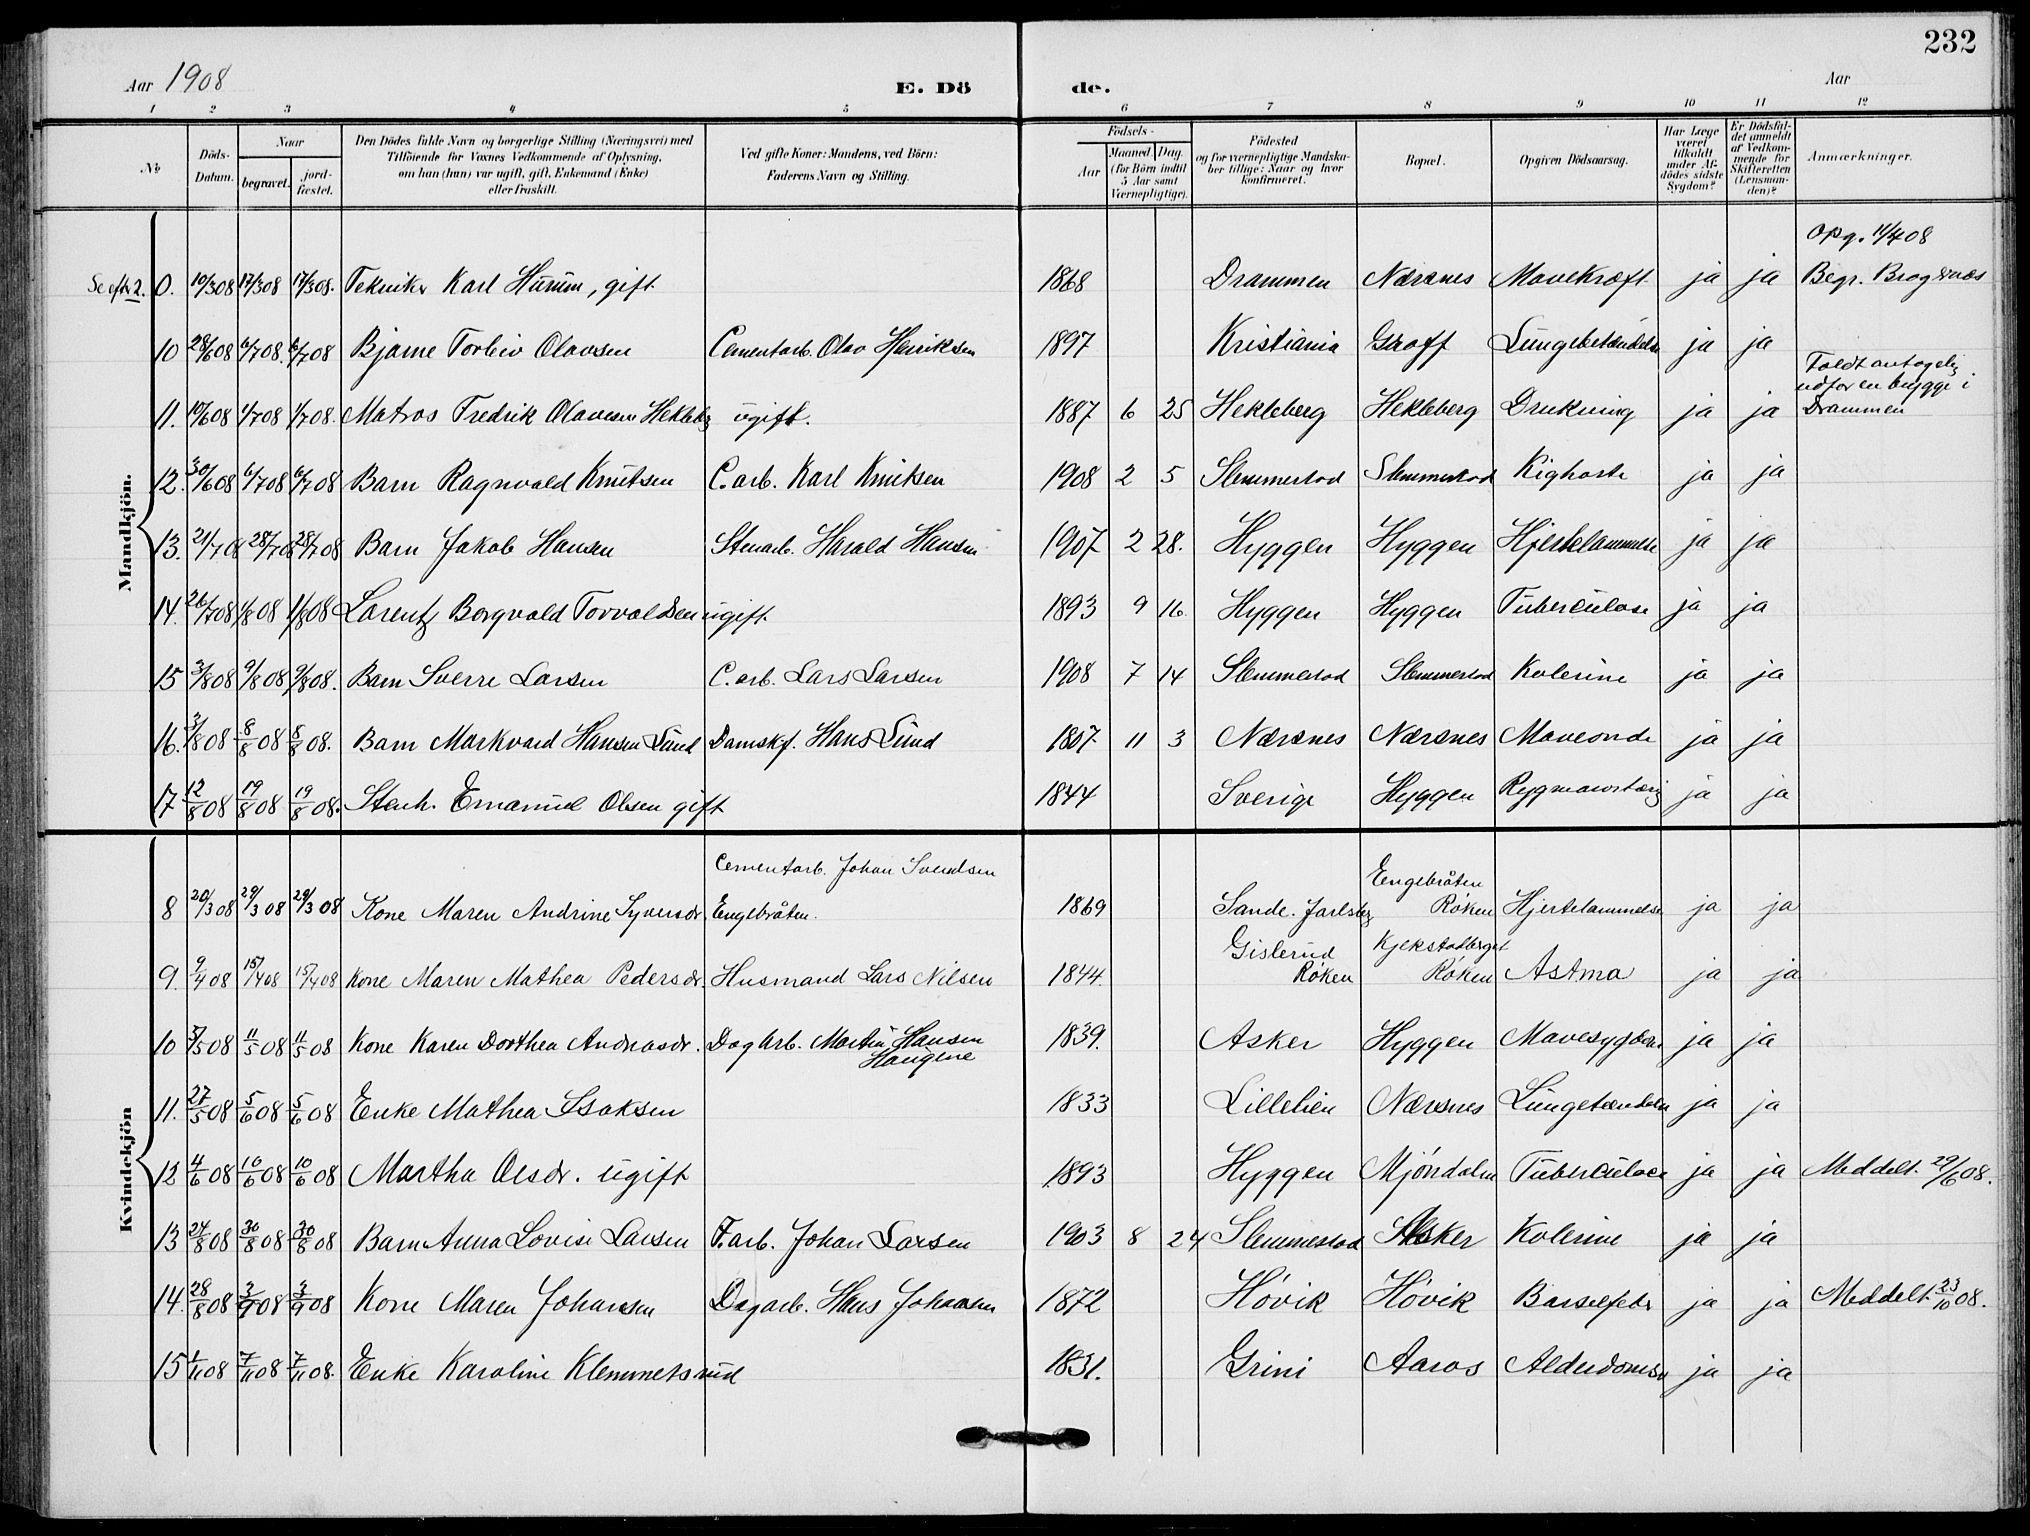 232
Aar 1908 E. Dö de. Aar
1 2 3 4 5 6 7 8 9 10 11 12
No
Döds-Datum.
Naar
begravet.
jord-fæstet.
Den Dödes fulde Navn og borgerlige Stilling (Næringsvei) med
Tilföiende for Voxnes Vedkommende af Oplysning,
om han (hun) var ugift, gift, Enkemand (Enke)
eller fraskilt.
Ved gifte Koner: Mandens, ved Börn:
Faderens Navn og Stilling.
Födsels-
Aar
Maaned. Dag.
(for Börn indtil
5 Aar samt
Værnepligtige).
Födested
og for værnepligtige Mandska-
ber tillige: Naar og hvor
konfirmeret.
Bopæl.
Opgiven Dödsaarsag.
Har Læge
været
tilkaldt
under Af-
dödes sidste
Sygdom?
Er Dödsfal-
det anmeldt
af Vedkom-
mende for
Skifteretten
(Lensman-
den)?
Anmærkninger.
Mandkjön.
Opg. 11/4 08
Se efter 2. 0. 10/3 08 17/3 08 17/3 08. Tekniker Karl Hurum, gift 1868 Drammen Nærsnes Mavekræft ja ja Begr. Bragernæs
10 28/6 08 6/7 08. 6/7 08 Bjarne Torleiv Olavsen Cementarb. Olav Henriksen 1897 Kristiania Graff Lungebetændelse ja ja
Faldt antagelig
udfor en brygge i
11. 19/6 08 1/7 08 1/7 08. Matros Fredrik Olavesen Hekleberg ugift. 1887 6 25 Hekleberg Hekleberg Drukning ja ja Drammen
12. 30/6 08 6/7 08 6/7 08 Barn Ragnvald Knutsen C. arb. Karl Knutsen 1908 2 5 Slemmestad Slemmestad Kighoste ja ja
13. 21/7 0 28/7 0 28/7 08 Barn Jakob Hansen Stenarb. Harald Hansen 1907 2 28. Hyggen Hyggen Hjertelammelse ja ja
14. 26/7 08 1/8 08 1/8 08 Lorentz Borgvald Torvaldsen ugift. 1893 9 16. Hyggen Hyggen Tuberculose ja ja
15 3/8 08 9/8 08 9/8 08. Barn Sverre Larsen C. arb. Lars Larsen 1908 7 14 Slemmestad Slemmestad Kolerine ja ja
16. 3/8 08 8/8 08 8/8 08. Barn Markvard Hansen Lund Damskf. Hans Lund 1807 11 3 Nærsnes Nærsnes Maveonde ja ja
17 12/8 08 19/8 08 19/8 08. Stenh. Emanuel Olsen gift 1844 Sverige Hyggen Rygmarvstæring ja ja
Kvindekjön
Cementarb. Johan Svendsen Engebråten
8 20/3 08 29/3 08 29/3 08 Kone Maren Andrine Syversdr. Engebråten. 1869 Sande. Jarlsberg Røken Hjertelammelse ja ja
Gislerud Kjekstadberget
9. 9/4 08 15/4 08 15/4 08 Kone Maren Mathea Pedersdr. Husmand Lars Nilsen 1844. Røken Røken Astma ja ja
10 5/5 08 11/5 08 11/5 08 Kone Karen Dorthea Andreasdr. Dagarb. Martin Hansen 1839. Asker Hyggen Mavesygdom ja ja
Haugene
11. 27/5 08 5/6 08 5/6 08 Enke Mathea Isaksen 1833 Lillelien Nærsnes Lungetændelse ja ja
12 4/6 08 10/6 08 10/6 08 Martha Olsdr. ugift 1893 Hyggen Mjöndalen Tuberculose ja ja Meddelt. 29/6 08.
13 24/8 08 30/8 08 30/8 08 Barn Anna Lovise Larsen F. arb. Johan Larsen 1903 8 24 Slemmestad Asker Kolerine ja ja
14. 28/8 08 3/9 08 3/9 08 Kone Maren Johansen Dagarb. Hans Johansen 1872 Høvik Høvik Barselfeber ja ja Meddelt. 23/10 08.
15 1/11 08 7/11 08 7/11 08. Enke Karoline Klemmetsrud 1831. Grini Aaros Alderdomssv ja ja